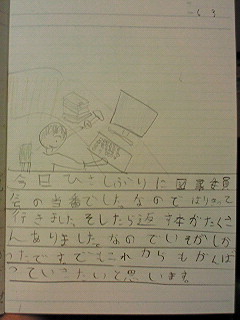 今日ひさしぶりに図書委員
会の当番でした。なので はりきって
行きました。そしたら返本がたくさ
んありました。なのでいそがしか
ったです。でもこれからもがんば
っていきたいと思います。